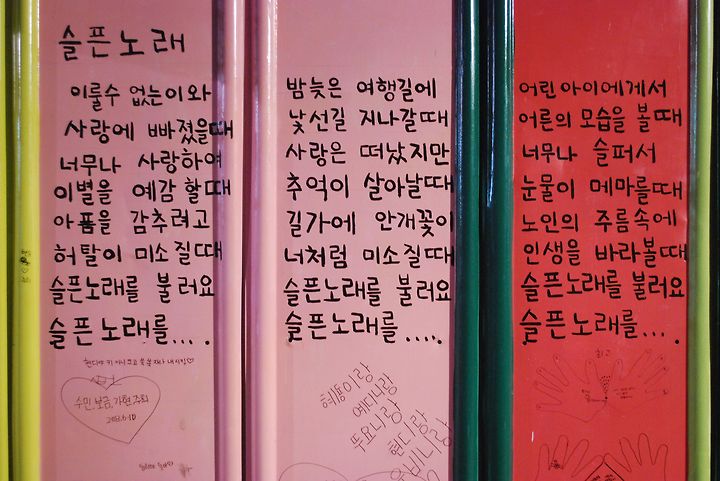 슬픈노래
이룰수 없는이와
사랑에 빠졌을때
너무나 사랑하여
이별을 예감할때
아픔을 감추려고
허탈이 미소질때
슬픈노래를 불러요
슬픈노래를....
밤늦은 여행길에
낯선길 지나갈때
사랑은 떠났지만
추억이 살아날때
길가에 안개꽃이
너처럼 미소질때
슬픈노래를 불러요
슬픈노래를.....
어린아이에게서
어른의 모습을 볼때
너무나 슬퍼서
눈물이 메마를때
노인의 주름속에
인생을 바라볼때
슬픈노래를 불러요
슬픈노래를....
수민,보금,가현,주희
혜뚱이랑
예다랑
뚜요니랑
현디랑
최고